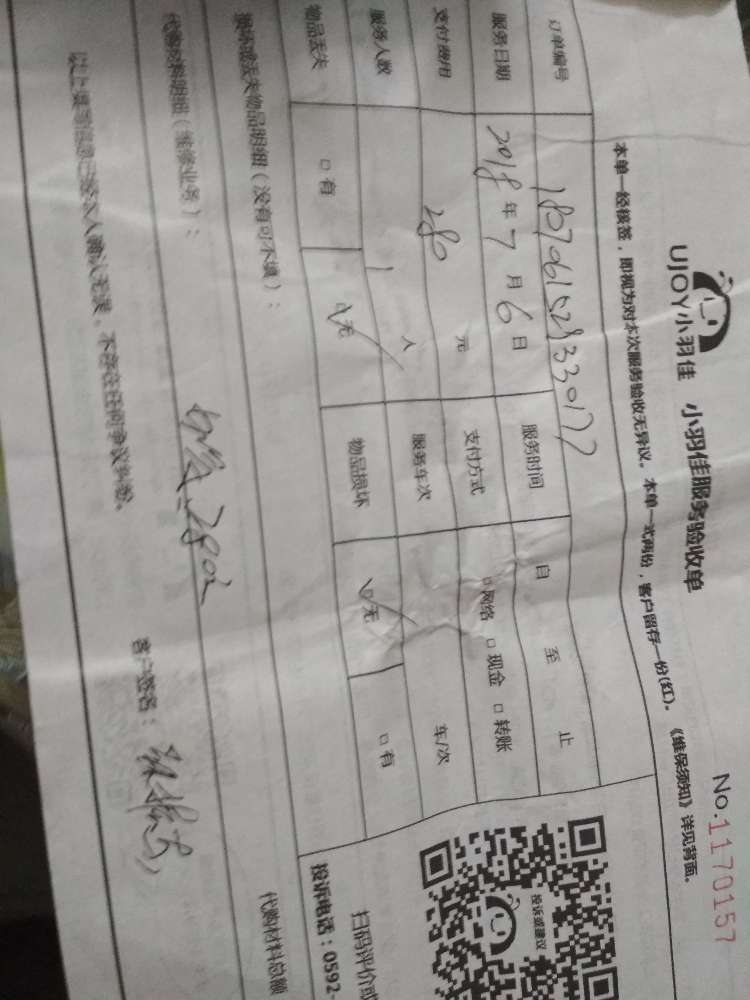 UJOY小羽佳 小羽佳服务验收单
No.1170157
本单一经核签，即视为对本次服务验收无异议。本单一式两份，客户留存一份(红)。《维保须知》详见背面。
订单编号
服务日期 2018年7月6日 服务时间 自 至 止
支付费用 280 元 支付方式 □网络 □现金 □转账
服务人数 1 人 服务车次 车/次
物品丢失 □有 □无 物品损坏 □无 □有
损坏或丢失物品明细（没有可不填）：
代购材料明细（维修业务）：
代购材料总额
以上填写信息已经本人确认无误，不存在任何争议纠纷。
客户签名：
投诉或建议
扫码评价或
投诉电话：0592-